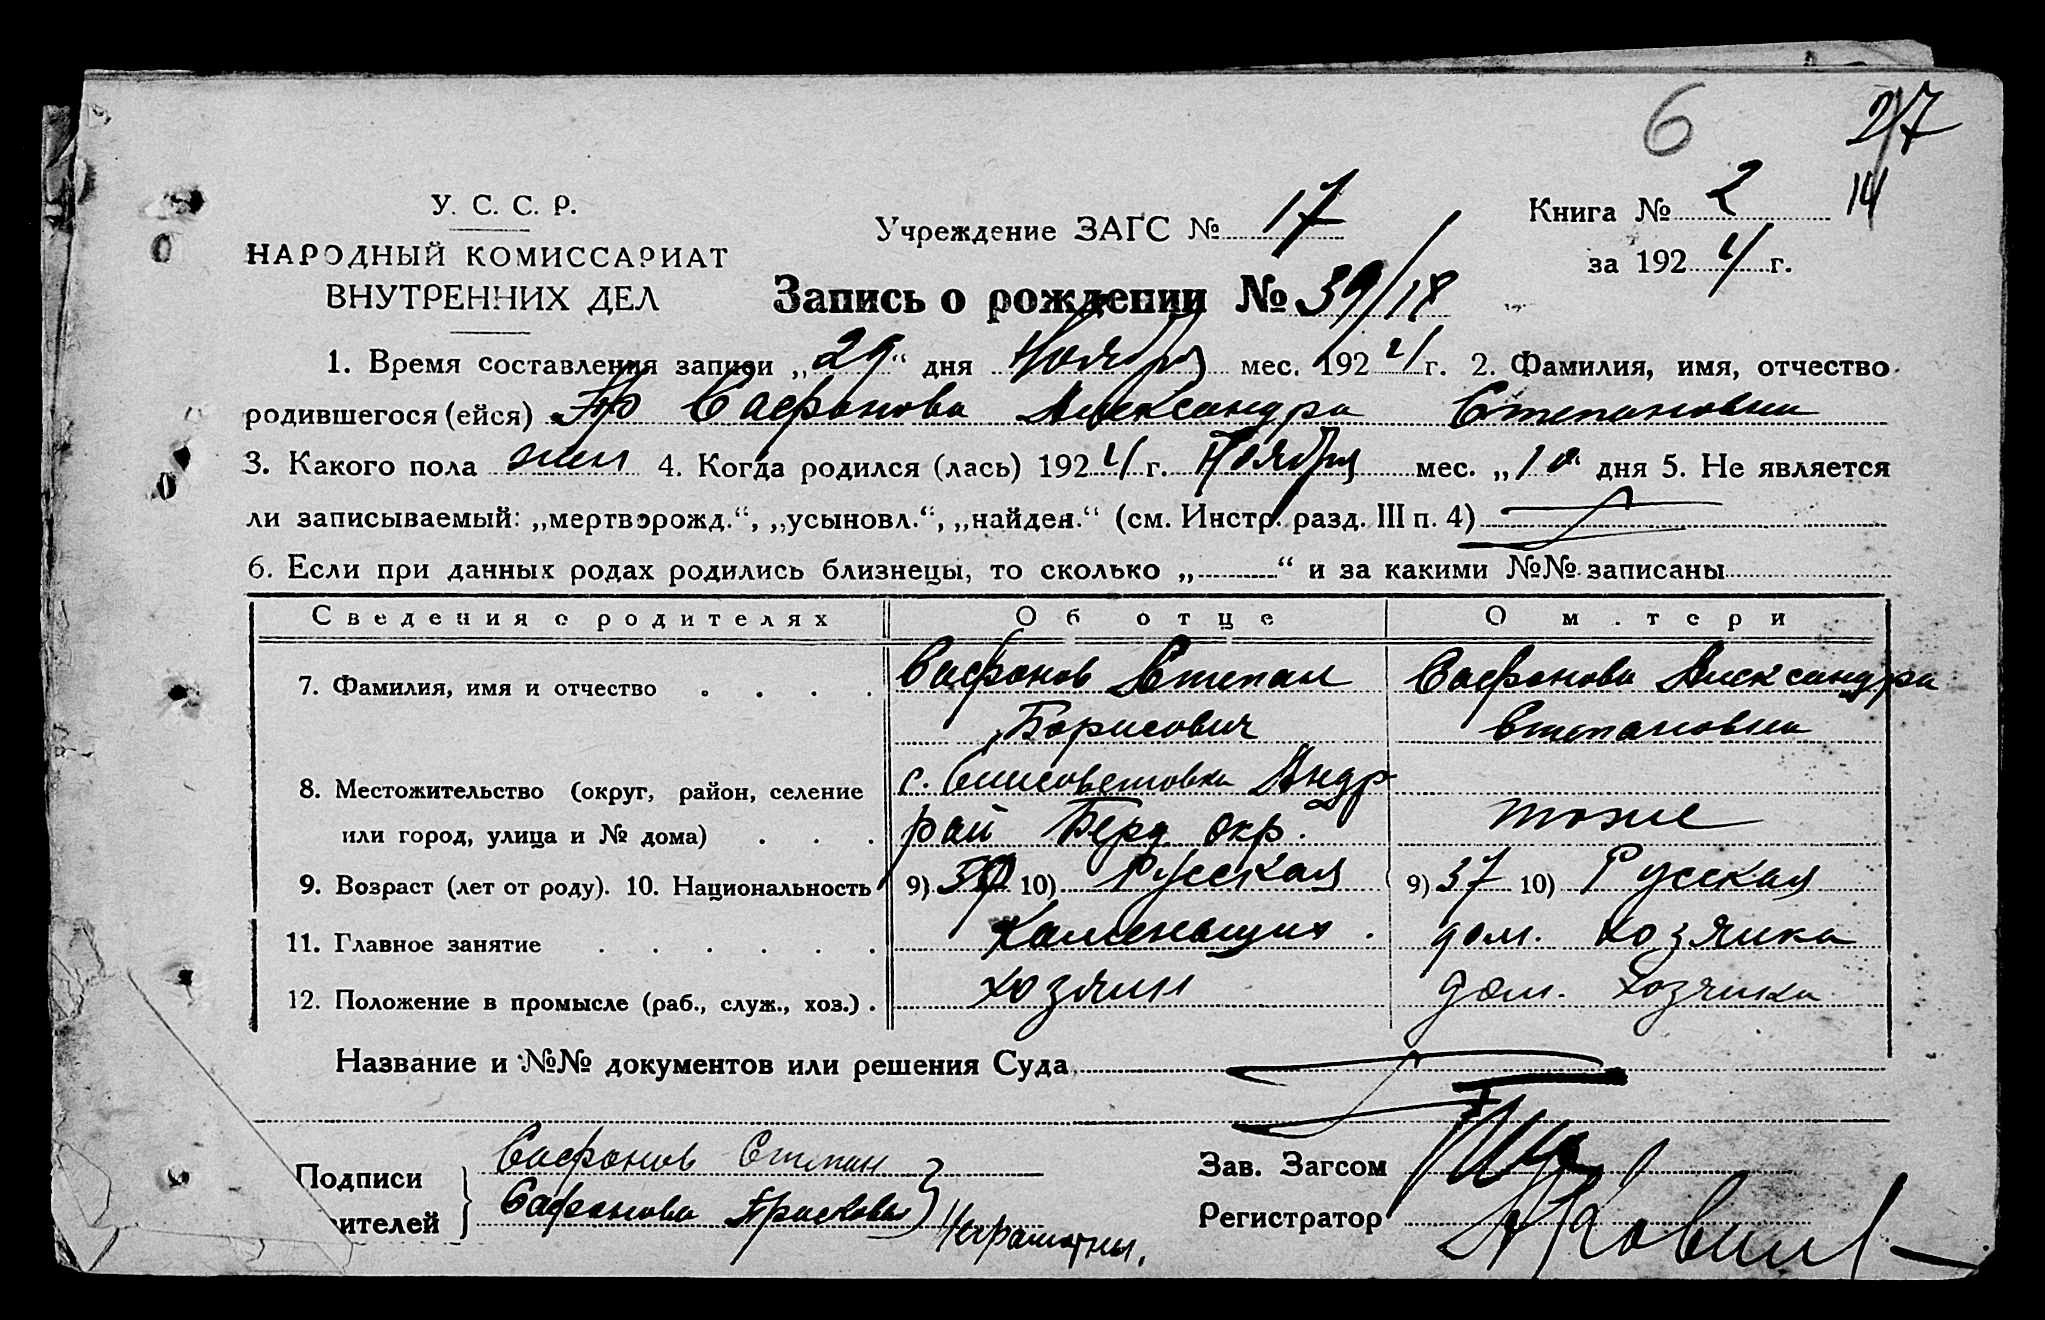 6 27
14
У. С. С. Р.
НАРОДНЫЙ КОМИССАРИАТ
ВНУТРЕННИХ ДЕЛ
Учреждение ЗАГС № 17
Книга № 2
за 1924 г.
Запись о рождении № 39/18
1. Время составления записи „29“ дня Ноября мес. 1924 г. 2. Фамилия, имя, отчество
родившегося (ейся) Гр Сафонова Александра Степановна
3. Какого пола жен 4. Когда родился (лась) 1924 г. Ноября мес. „10“ дня 5. Не является
ли записываемый: „мертворожд.“, „усыновл.“, „найден.“ (см. Инстр. разд. III п. 4)
6. Если при данных родах родились близнецы, то сколько „ “ и за какими №№ записаны
Сведения о родителях Об отце О м.тери
7. Фамилия, имя и отчество Сафонов Степан Сафонова Александра
Борисович Степановна
8. Местожительство (округ, район, селение с. Елисоветовка Андр
или город, улица и № дома) рай Берд. окр. тоже
9. Возраст (лет от роду). 10. Национальность 9) 10) Русская 9) 37 10) Русская
11. Главное занятие Каменьщик. дом. хозяйка
12. Положение в промысле (раб., служ., хоз.) хозяин дом. хозяйка
Название и №№ документов или решения Суда
Подписи Сафонов Степан
ителей Сафонова Прасковья Неграмотны.
Зав. Загсом
Регистратор